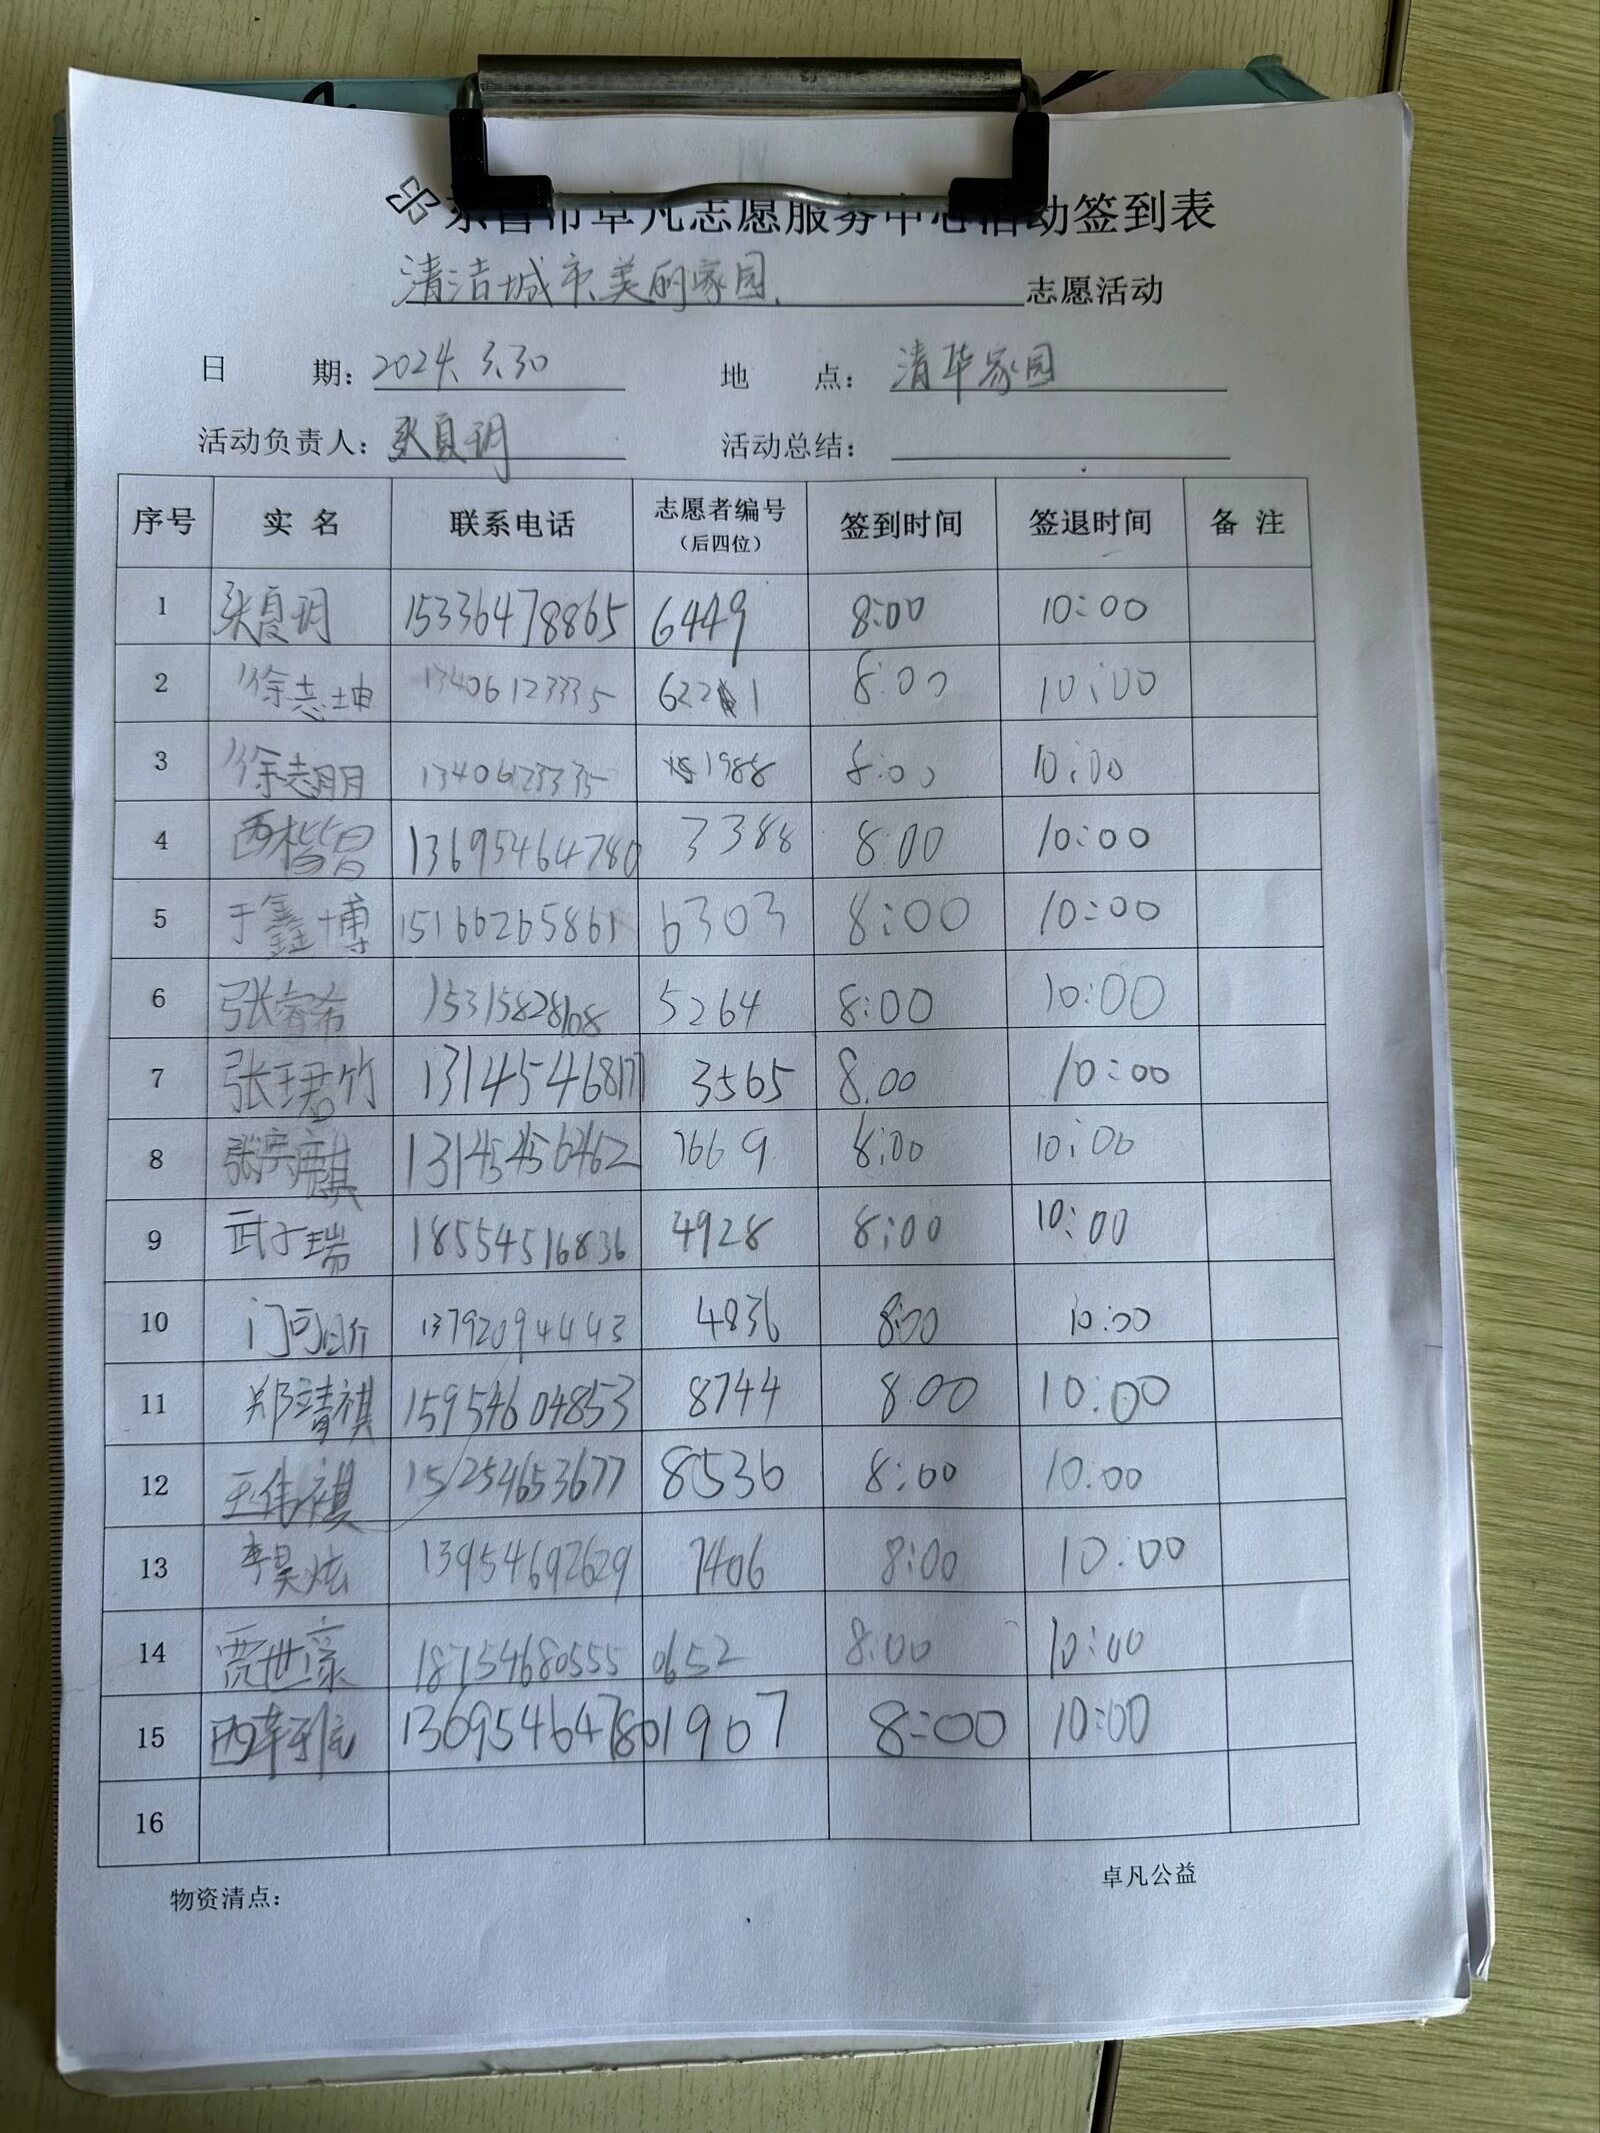 东营市卓凡志愿服务中心活动签到表
清洁城市、美丽家园、 志愿活动
日 期：2024.3.30 地 点：清华家园
活动负责人：张夏玥 活动总结：
序号 实 名 联系电话 志愿者编号（后四位） 签到时间 签退时间 备 注
1 张夏玥 15336478865 6449 8:00 10:00
2 徐志坤 13406123335 6221 8:00 10:00
3 徐志朋 13406123335 1988 8:00 10:00
4 西楷智 13695464780 3388 8:00 10:00
5 于鑫博 15166265861 6303 8:00 10:00
6 张睿希 15315828108 5264 8:00 10:00
7 张珺竹 13145468177 3565 8:00 10:00
8 张宾麒 7669 8:00 10:00
9 武子瑞 18554516836 4928 8:00 10:00
10 门 13792094443 4836 8:00 10:00
11 郑靖祺 15954604853 8744 8:00 10:00
12 王伟祺 15254653677 8536 8:00 10:00
13 李昊炫 13954692629 7406 8:00 10:00
14 贾世豪 18754680555 0652 8:00 10:00
15 西 13695464780 1907 8:00 10:00
16
物资清点：
卓凡公益